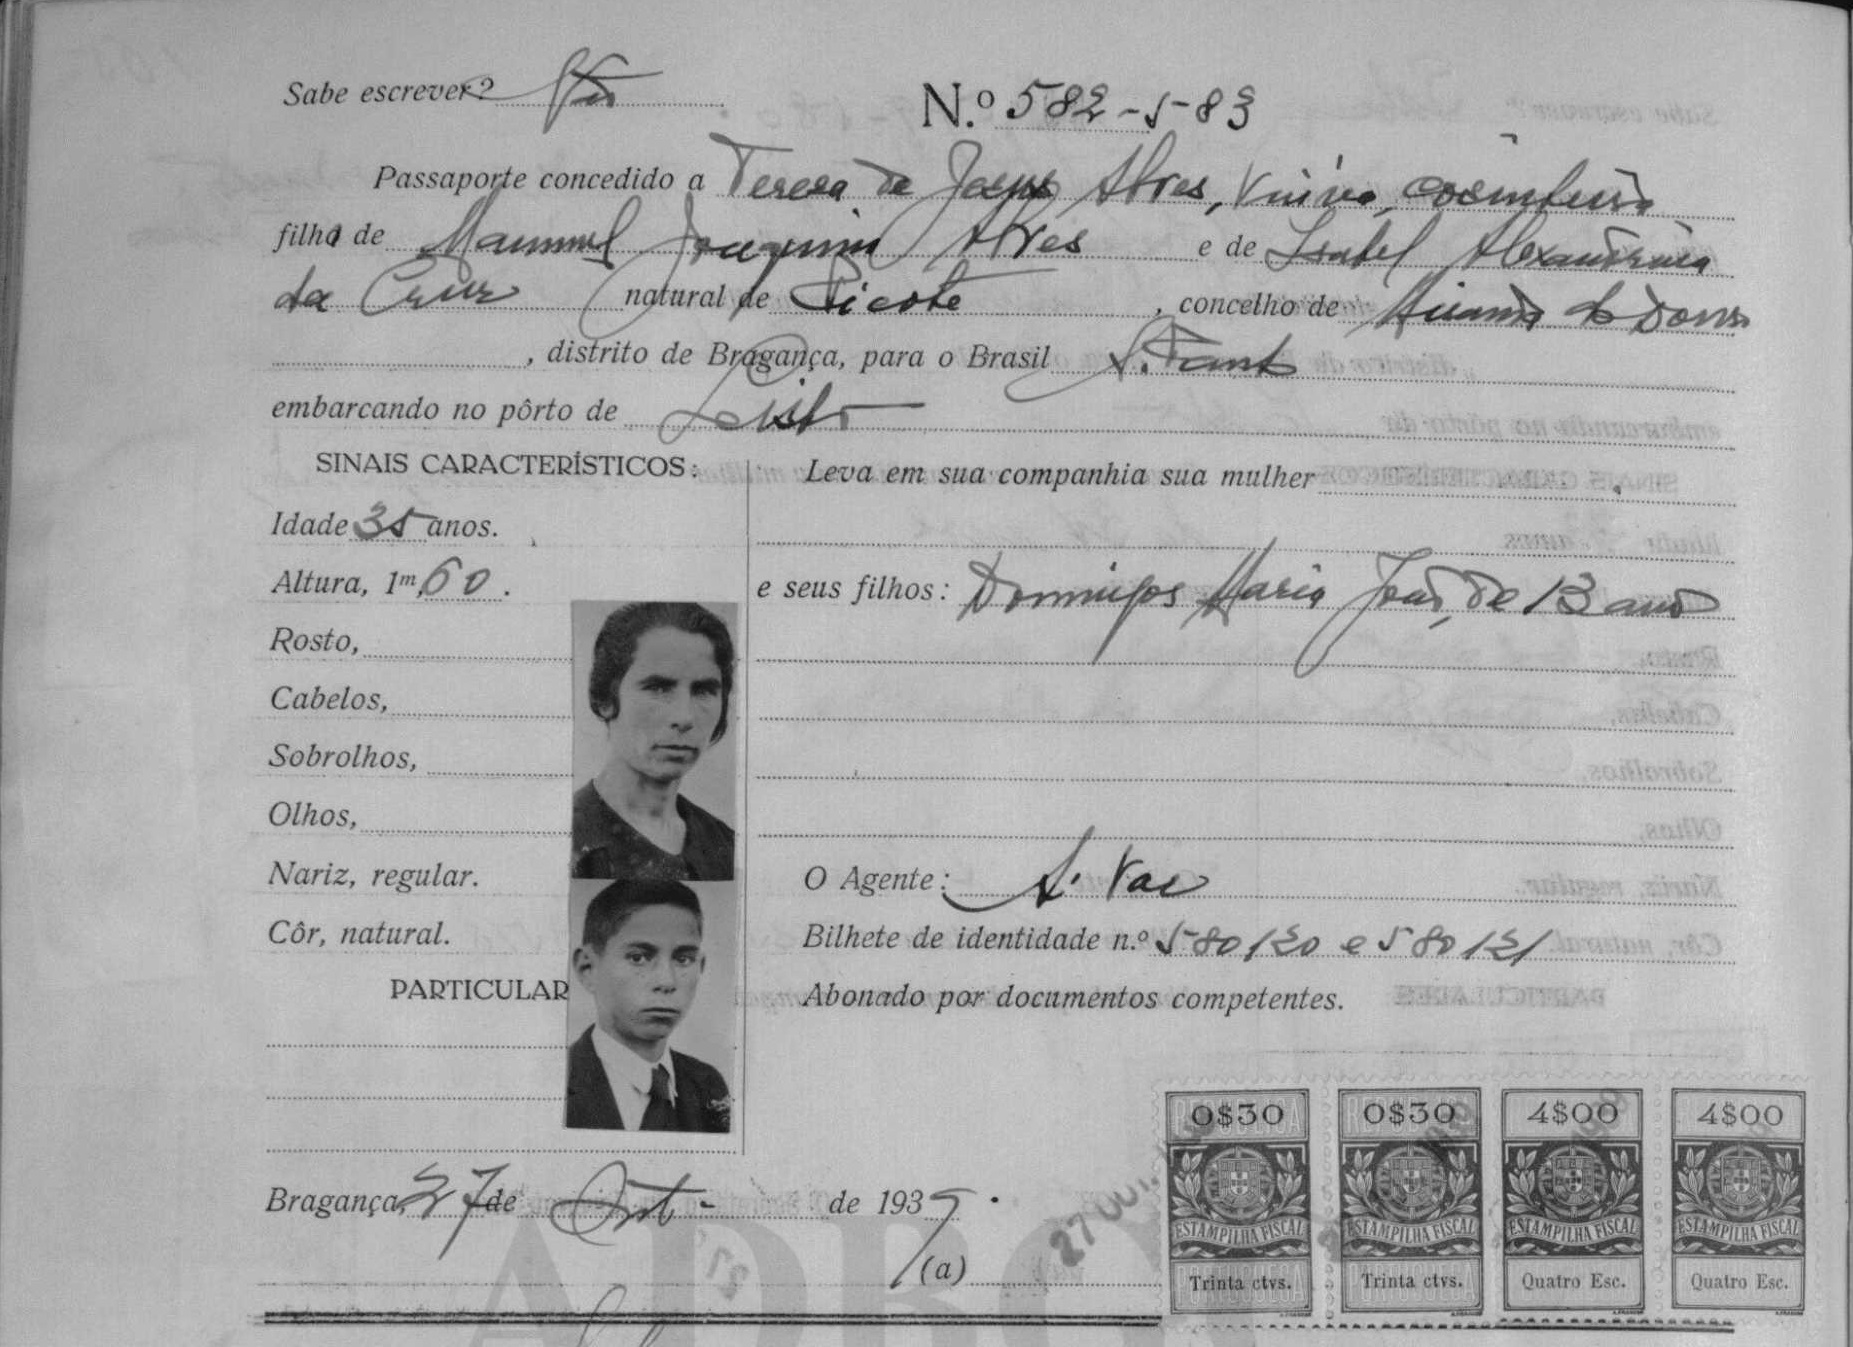 Sabe escrever? Não
N.º 582-583
Passaporte concedido a Teresa de Jesus Alves, Viúva, cosinheira
filha de Manuel Joaquim Alves e de Isabel Alexandrina
da Cruz natural de Picote, concelho de Miranda do Douro
, distrito de Bragança, para o Brasil S. Santos
embarcando no pôrto de Leixões
SINAIS CARACTERÍSTICOS: Leva em sua companhia sua mulher
Idade 35 anos.
Altura, 1m,60. e seus filhos: Domingos Maria João, de 13 anos
Rosto,
Cabelos,
Sobrolhos,
Olhos,
Nariz, regular. O Agente: A. Vaz
Côr, natural. Bilhete de identidade n.º 580120 e 580121
PARTICULAR Abonado por documentos competentes.
0$30 0$30 4$00 4$00
Bragança, 27 de Out. de 1937.
ESTAMPILHA FISCAL ESTAMPILHA FISCAL ESTAMPILHA FISCAL ESTAMPILHA FISCAL
27 OUT.
(a)
Trinta ctvs. Trinta ctvs. Quatro Esc. Quatro Esc.